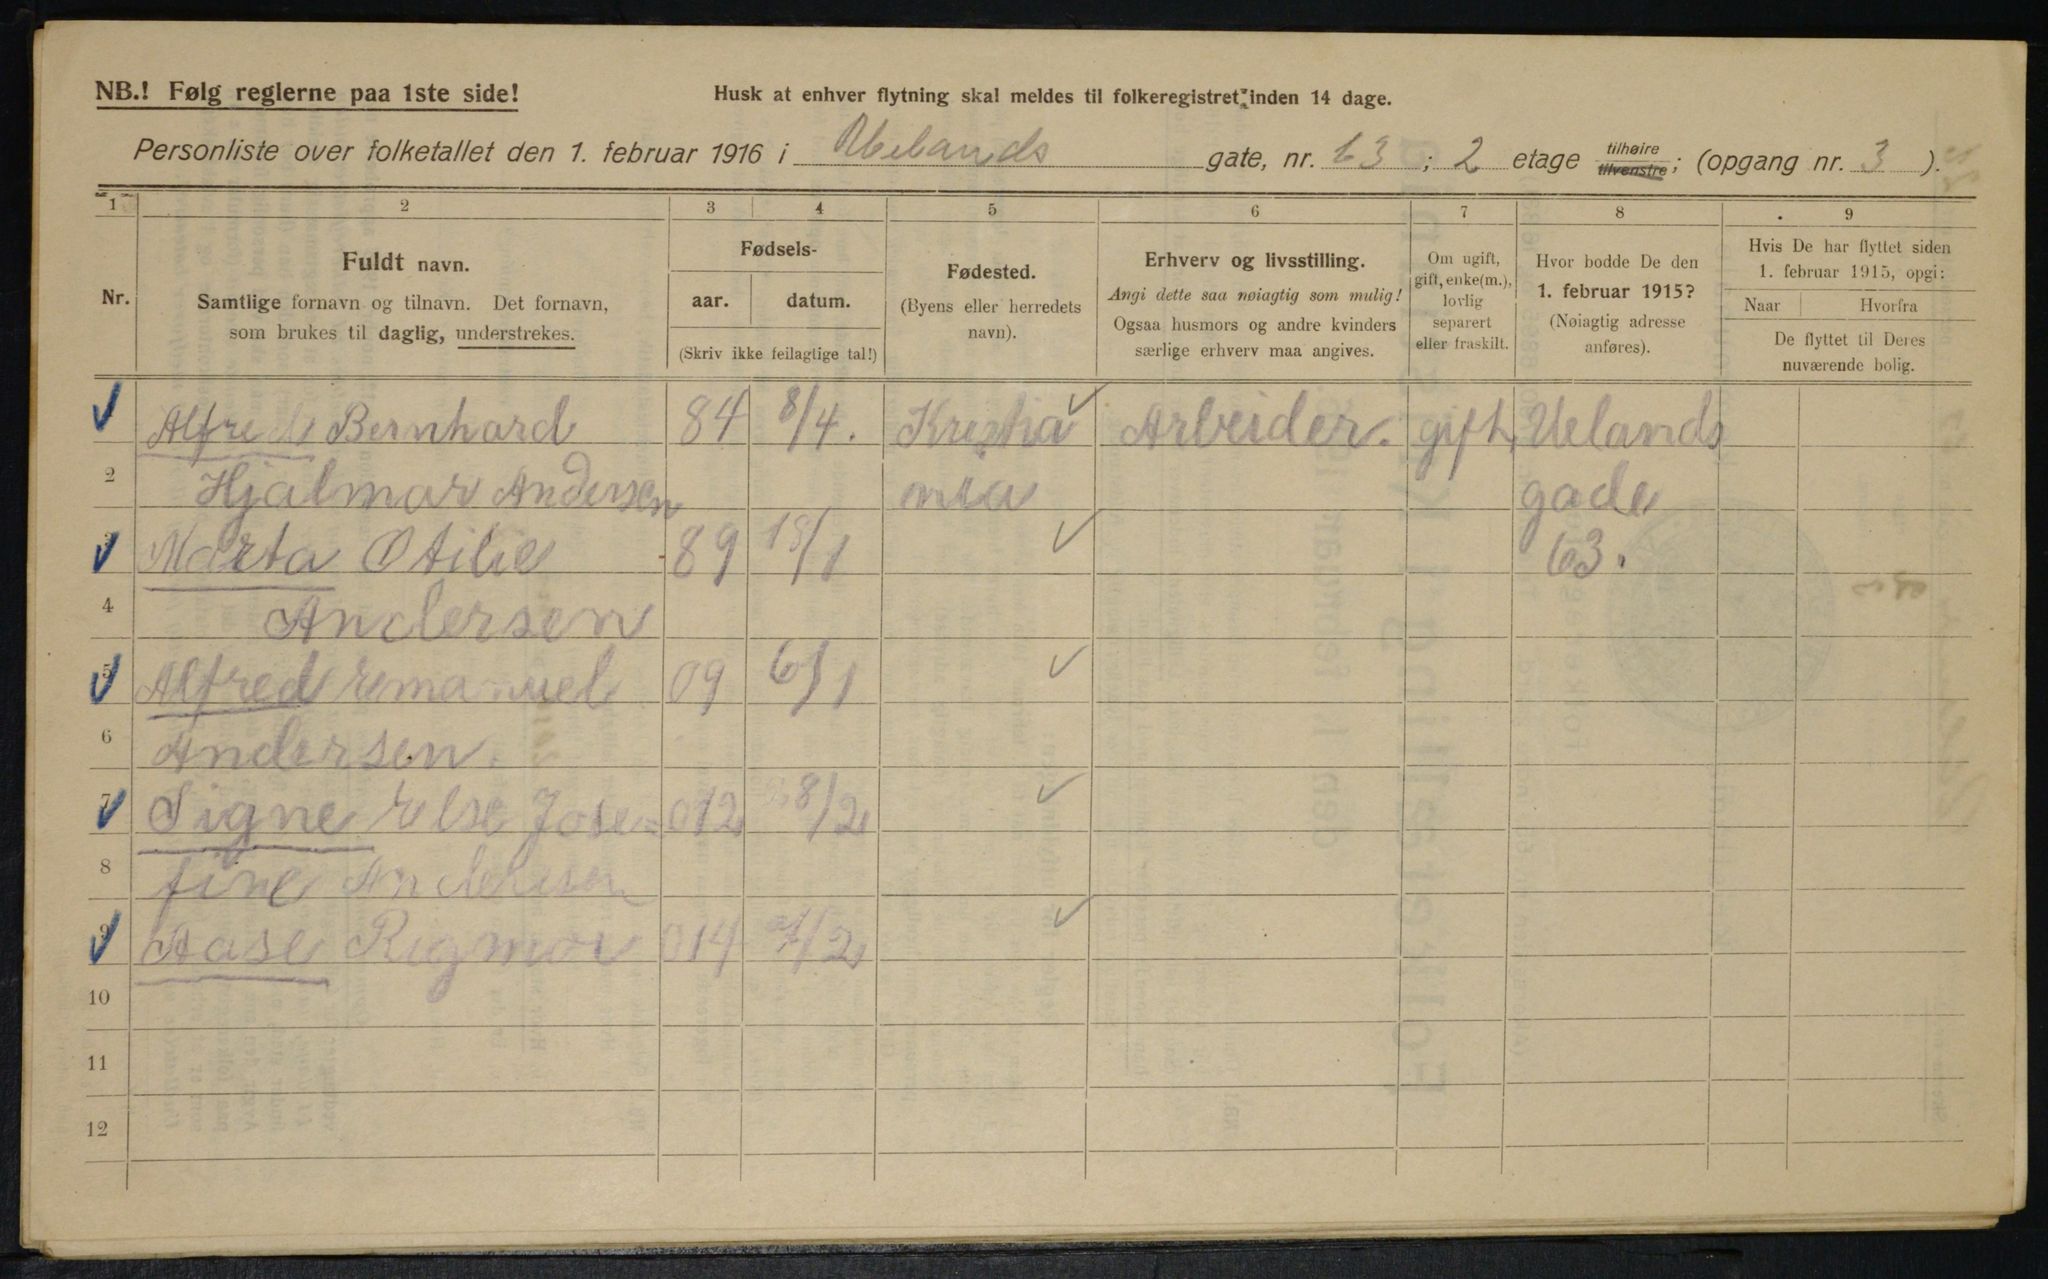 NB.! Følg reglerne paa 1ste side!
Husk at enhver flytning skal meldes til folkeregistret inden 14 dage.
Personliste over folketallet den 1. februar 1916 i Uelands gate, nr. 63 ; 2 etage tilhøire tilvenstre; (opgang nr. 3 ).
1 2 3 4 5 6 7 8 9
Nr.
Fuldt navn.
Samtlige fornavn og tilnavn. Det fornavn,
som brukes til daglig, understrekes.
Fødsels-
aar. datum.
(Skriv ikke feilagtige tal!)
Fødested.
(Byens eller herredets
navn).
Erhverv og livsstilling.
Angi dette saa nøiagtig som mulig!
Ogsaa husmors og andre kvinders
særlige erhverv maa angives.
Om ugift,
gift, enke(m.),
lovlig
separert
eller fraskilt.
Hvor bodde De den
1. februar 1915?
(Nøiagtig adresse
anføres).
Hvis De har flyttet siden
1. februar 1915, opgi:
Naar Hvorfra
De flyttet til Deres
nuværende bolig.
Alfred Bernhard 84 8/4. Kristia Arbeider. gift, Uelands
2 Hjalmar Andersen nia gade
3 Marta Otilie 89 /1 63.
4 Andersen
5 Alfred Emanuel 09 6/1
6 Andersen.
7 Signe Else Jose= 012 8/2
8 fine Andersen
9 Aase Rigmor 014 /2
10
11
12